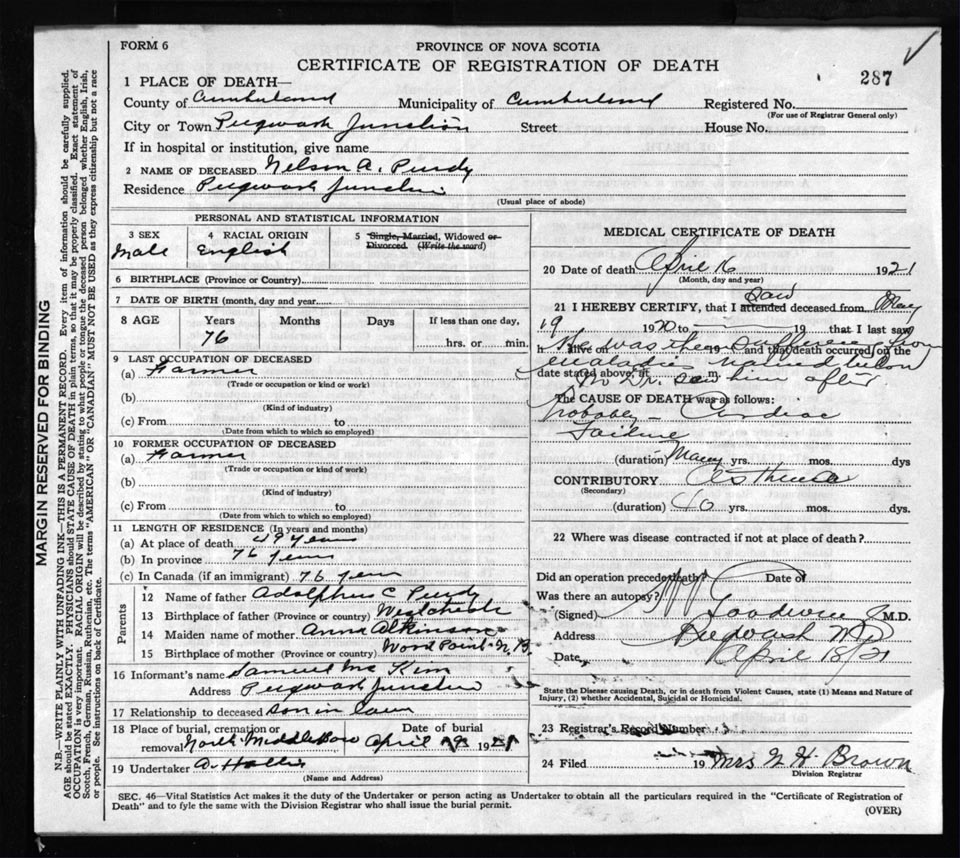 FORM 6
PROVINCE OF NOVA SCOTIA
CERTIFICATE OF REGISTRATION OF DEATH
287
1 PLACE OF DEATH—
County of Cumberland Municipality of Cumberland Registered No.
(For use of Registrar General only)
City or Town Pugwash Junction Street House No.
If in hospital or institution, give name
2 NAME OF DECEASED Nelson A. Purdy
Residence Pugwash Junction
(Usual place of abode)
PERSONAL AND STATISTICAL INFORMATION
3 SEX 4 RACIAL ORIGIN 5 Single, Married, Widowed or
Divorced. (Write the word)
Male English
6 BIRTHPLACE (Province or Country)
7 DATE OF BIRTH (month, day and year)
8 AGE Years Months Days If less than one day,
76 hrs. or min.
9 LAST OCCUPATION OF DECEASED
(a) Farmer
(Trade or occupation or kind or work)
(b)
(Kind of industry)
(c) From to
(Date from which to which so employed)
10 FORMER OCCUPATION OF DECEASED
(a) Farmer
(Trade or occupation or kind of work)
(b)
(Kind of industry)
(c) From to
(Date from which to which so employed)
11 LENGTH OF RESIDENCE (In years and months)
(a) At place of death 49 years
(b) In province 76 years
(c) In Canada (if an immigrant) 76 years
Parents
12 Name of father Adolphus C Purdy
13 Birthplace of father (Province or country) Westchester
14 Maiden name of mother Anna Atkinson
15 Birthplace of mother (Province or country) Wood Point N.B.
16 Informant's name Samuel Mc Kim
Address Pugwash Junction
17 Relationship to deceased son in law
18 Place of burial, cremation or Date of burial
removal North Middleboro April 19 1921
19 Undertaker A. Hollis
(Name and Address)
MEDICAL CERTIFICATE OF DEATH
20 Date of death April 16 1921
(Month, day and year)
21 I HEREBY CERTIFY, that I attended saw deceased from May
19 1920 to 19 that I last saw
h alive on 19 and that death occurred on the
He was then suffering from
maladies named below
date stated above, at m.
No Dr. saw him after
The CAUSE OF DEATH was as follows:
Probably - Cardiac
Failure
(duration) Many yrs. mos. dys
CONTRIBUTORY Asthma
(Secondary)
(duration) 40 yrs. mos. dys
22 Where was disease contracted if not at place of death?
Did an operation precede death? Date of
Was there an autopsy?
(Signed) Goodwin M.D.
Address Pugwash NS
Date, April 18/21
State the Disease causing Death, or in death from Violent Causes, state (1) Means and Nature of
Injury, (2) whether Accidental, Suicidal or Homicidal.
23 Registrar's Record Number
24 Filed 19 Mrs H Brown
Division Registrar
SEC. 46—Vital Statistics Act makes it the duty of the Undertaker or person acting as Undertaker to obtain all the particulars required in the "Certificate of Registration of
Death" and to fyle the same with the Division Registrar who shall issue the burial permit.
(OVER)
MARGIN RESERVED FOR BINDING
N.B.—WRITE PLAINLY WITH UNFADING INK—THIS IS A PERMANENT RECORD. Every item of information should be carefully supplied.
AGE should be stated EXACTLY. PHYSICIANS should STATE CAUSE OF DEATH in plain terms, so that it may be properly classified. Exact statement of
OCCUPATION is very important. RACIAL ORIGIN will be described by stating to what people or tongue the deceased person belonged whether English, Irish,
Scotch, French, German, Russian, Ruthenian, etc. The terms "AMERICAN" OR "CANADIAN" MUST NOT BE USED as they express citizenship but not a race
or people. See instructions on back of Certificate.